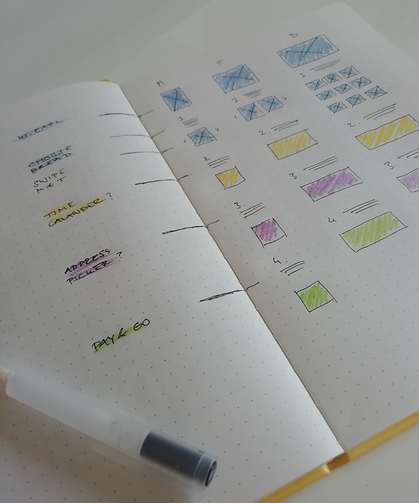 M T D
CHOOSE
BREAD
SWIPE
M & T
TIME
CALANDER ?
ADDRESS
PICKER ?
PAY & GO
1.
1.
1.
2.
2.
2.
3.
3.
3.
4.
4.